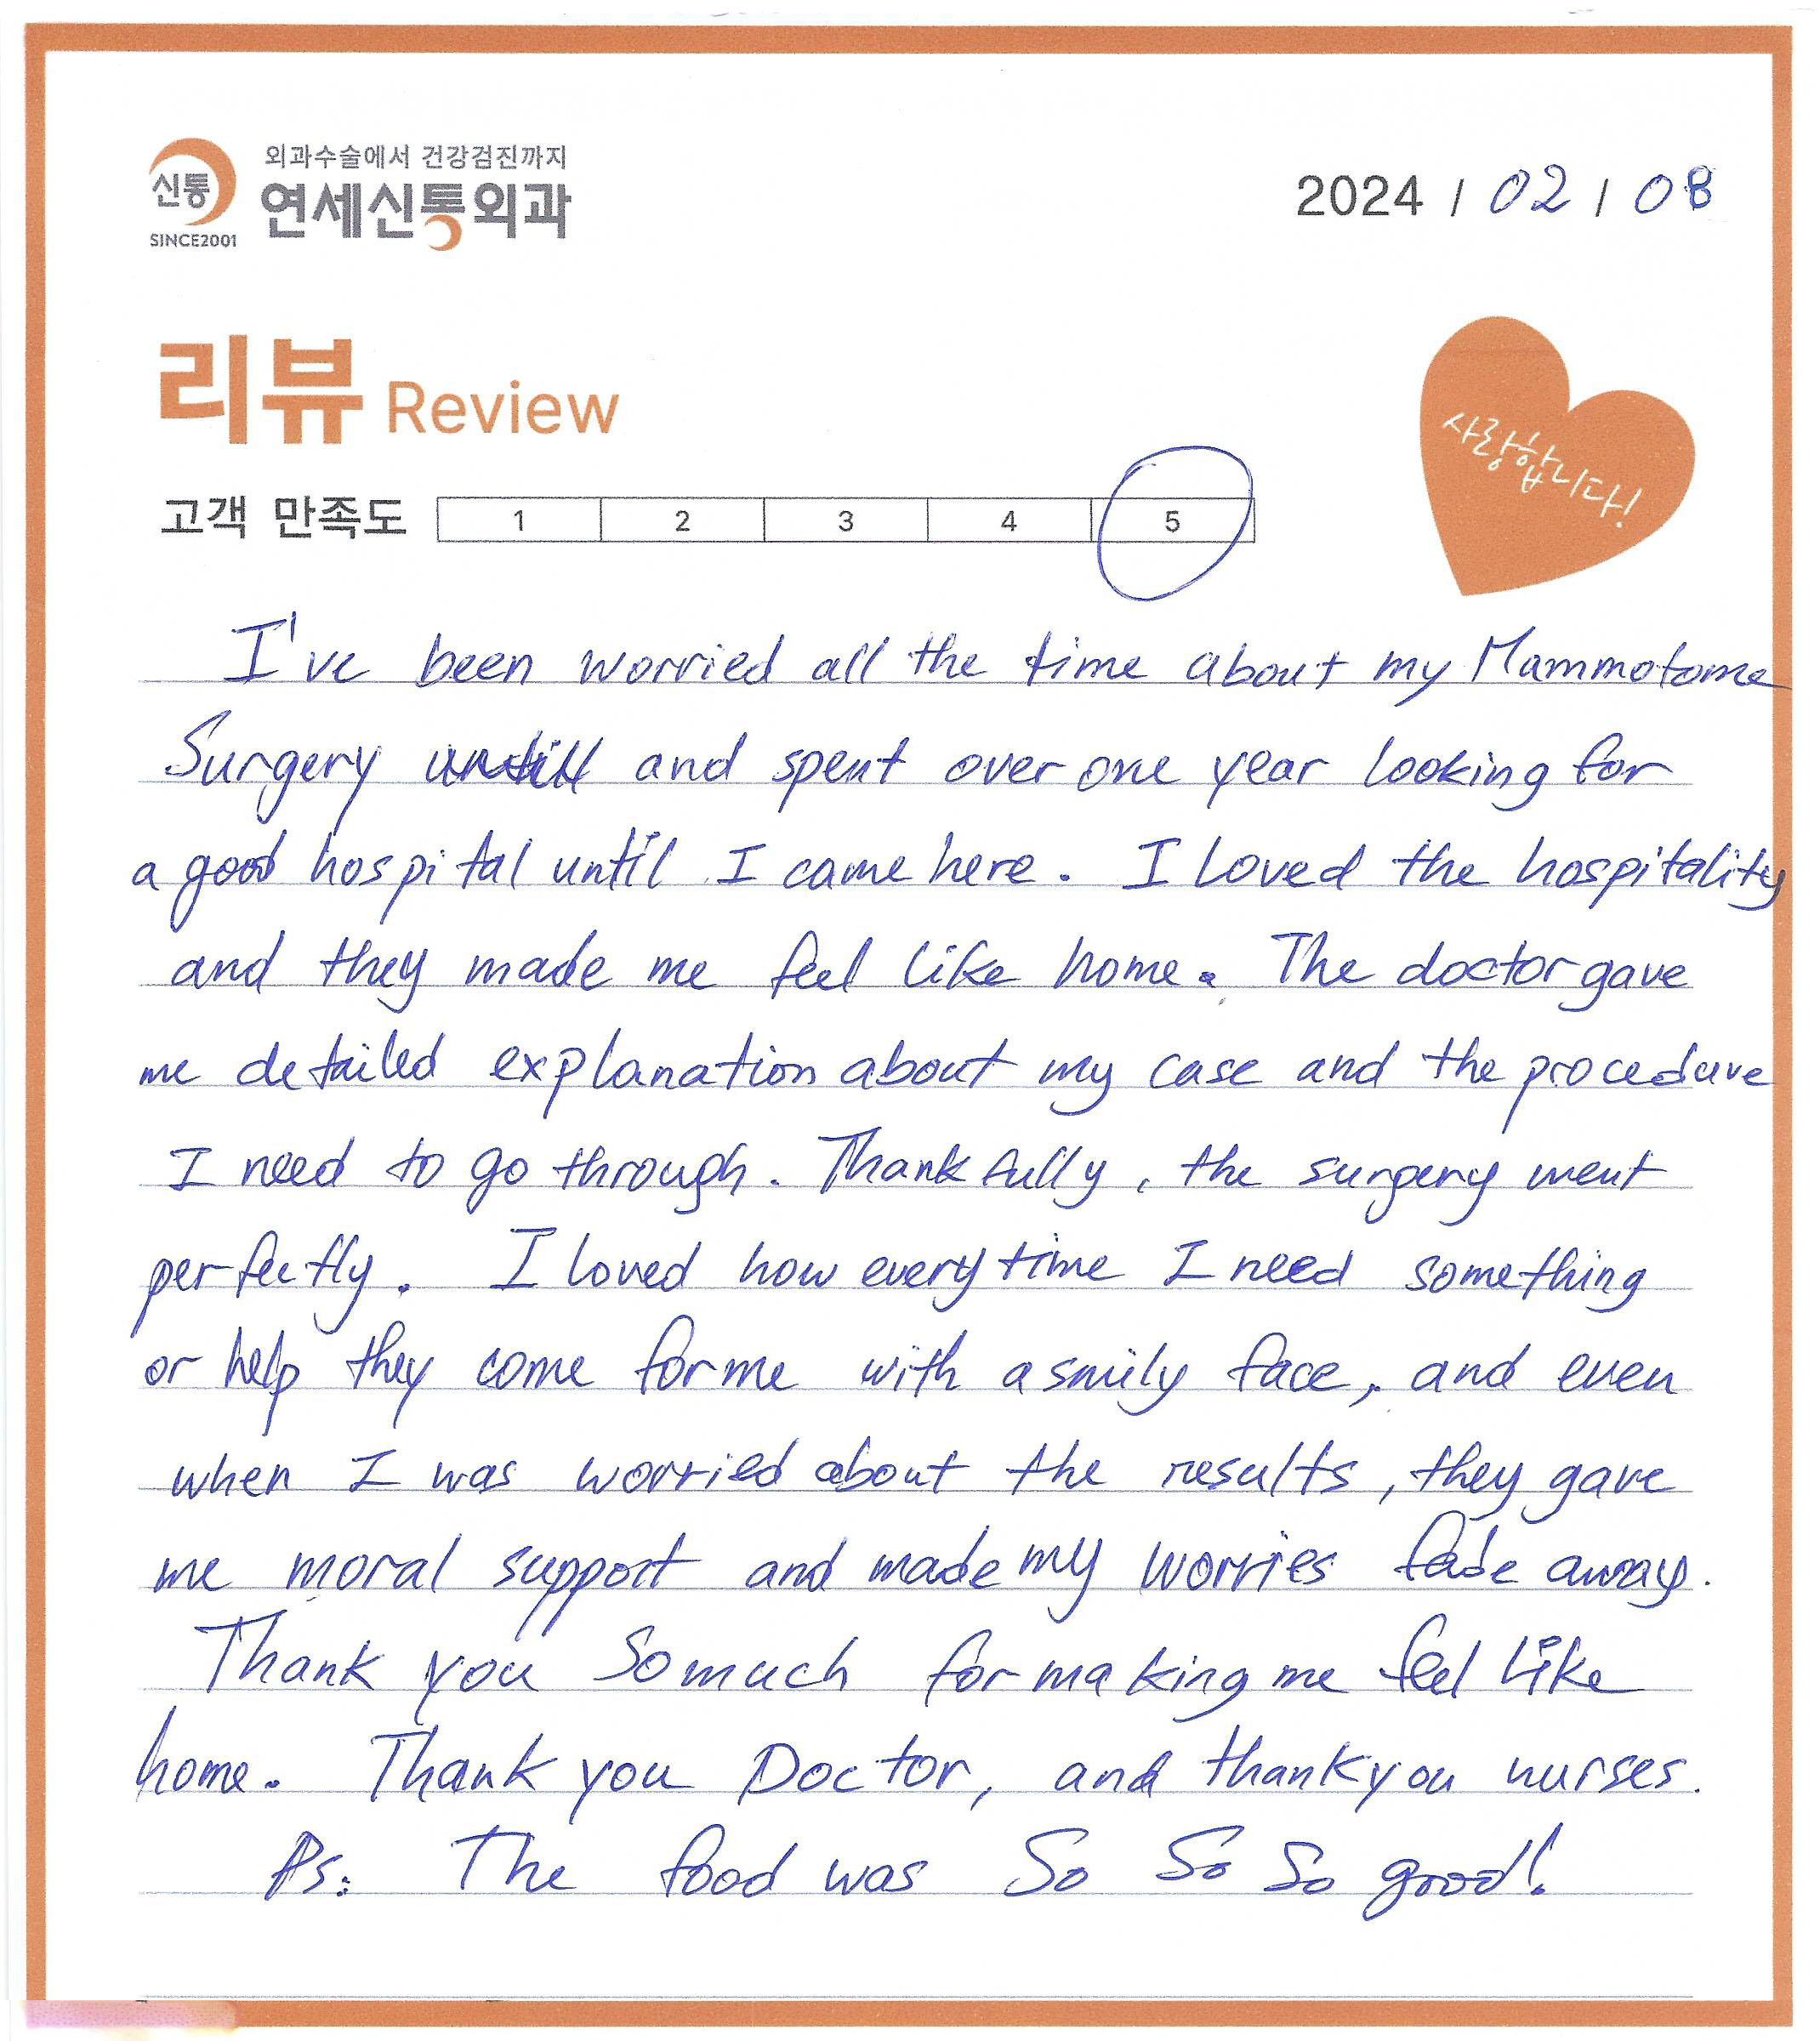 신통
SINCE2001
외과수술에서 건강검진까지
연세신통외과
2024 / 02 / 08
리뷰 Review
사랑합니다!
고객 만족도 1 2 3 4 5
I've been worried all the time about my Mammotome
Surgery and spent over one year looking for
a good hospital until I came here. I loved the hospitality
and they made me feel like home. The doctor gave
me detailed explanation about my case and the procedure
I need to go through. Thankfully, the surgery went
perfectly. I loved how every time I need something
or help they come for me with a smily face, and even
when I was worried about the results, they gave
me moral support and made my worries fade away.
Thank you so much for making me feel like
home. Thank you Doctor, and thank you nurses.
Ps: The food was So So So good!